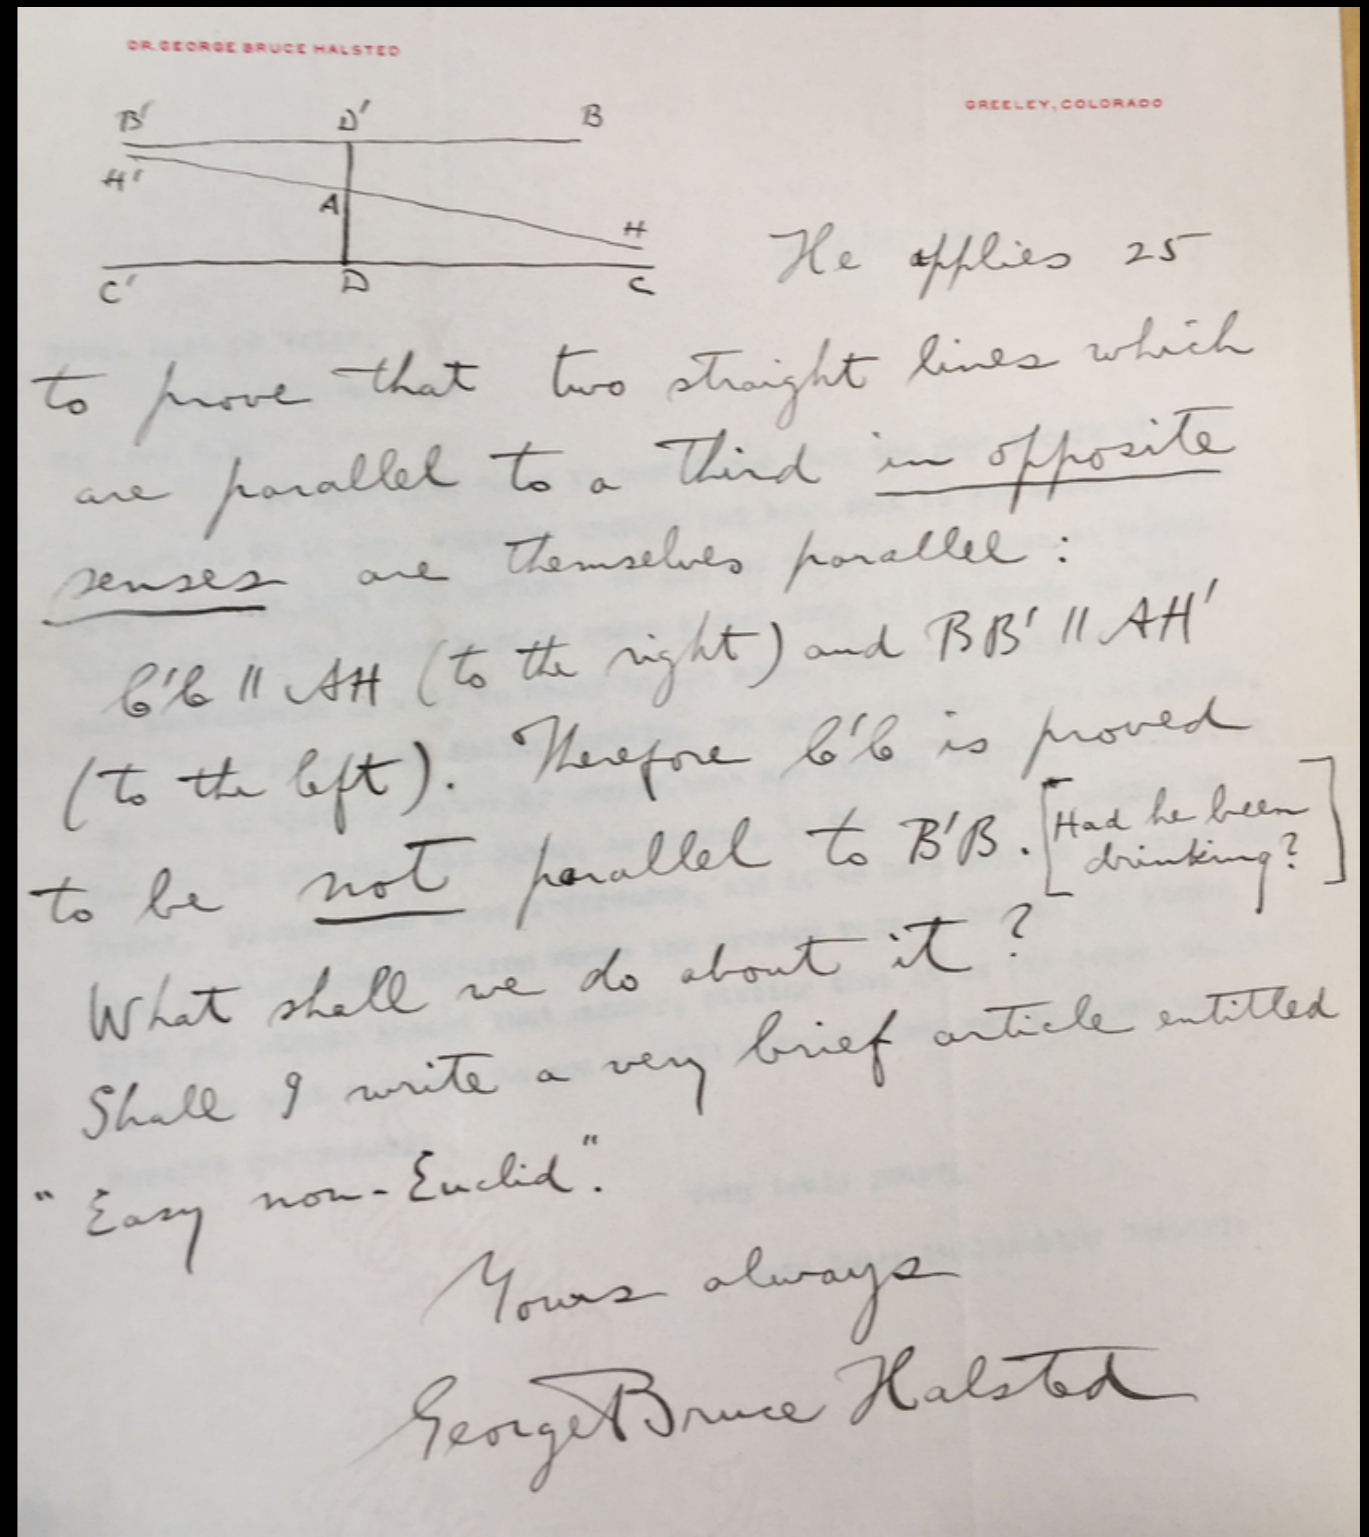 DR. GEORGE BRUCE HALSTED
GREELEY, COLORADO
B' D' B
H' A H
C' D C
He applies 25
to prove that two straight lines which
are parallel to a third in opposite
senses are themselves parallel :
C'C || AH (to the right) and BB' || AH'
(to the left). Therefore C'C is proved
to be not parallel to B'B. [Had he been
drinking?]
What shall we do about it?
Shall I write a very brief article entitled
"Easy non-Euclid".
Yours always
George Bruce Halsted